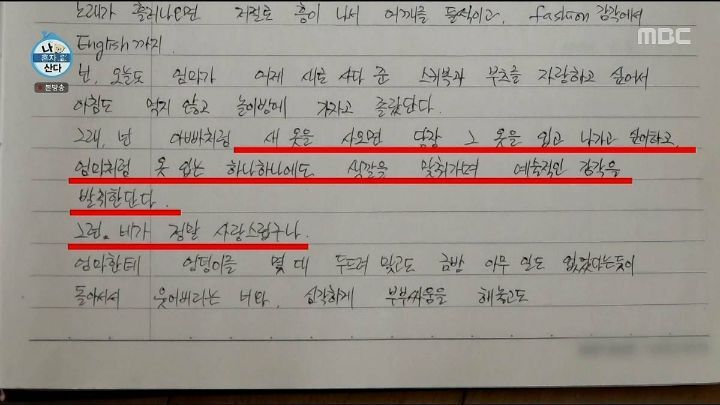 노래가 흘러나오면 저절로 흥이 나서 어깨를 들썩이고, fashion 감각에서
English까지.
나 혼자 산다
본방송
MBC
넌, 오늘도 엄마가 어제 새로 사다 준 스커트과 부츠를 자랑하고 싶어서
아침도 먹지 않고 놀이방에 가자고 졸랐단다.
그래, 넌 아빠처럼 새 옷을 사오면 당장 그 옷을 입고 나가고 싶어하고,
엄마처럼 옷 입는 하나하나에도 색깔을 맞춰가며 예술적인 감각을
발휘한단다.
그런 네가 정말 사랑스럽구나.
엄마한테 엉덩이를 몇 대 두드려 맞고도 금방 아무 일도 없었다는듯이
돌아서서 웃어버리는 너와, 심각하게 부부싸움을 해놓고도